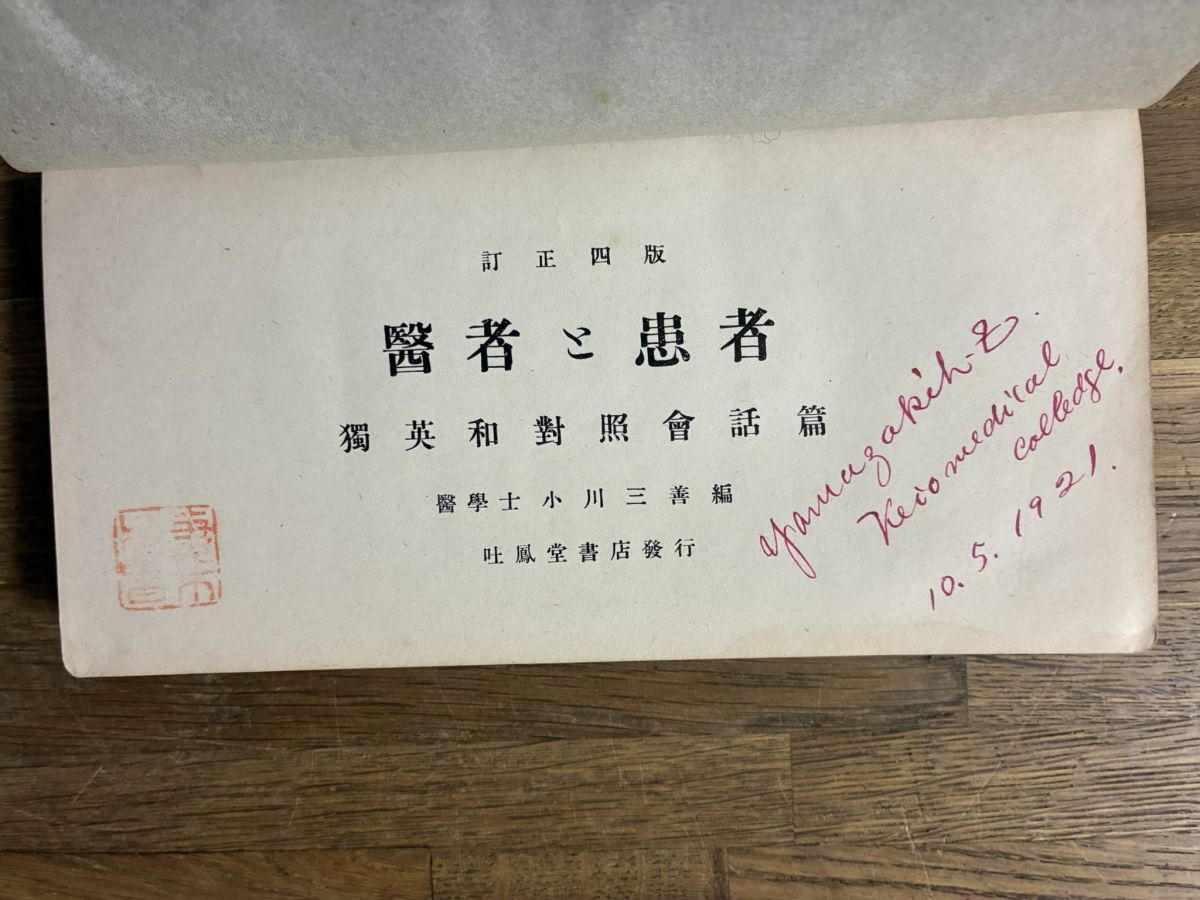 訂正四版
醫者と患者
獨英和對照會話篇
醫學士小川三善編
吐鳳堂書店發行
Keio medical
colledge.
10. 5. 1921.